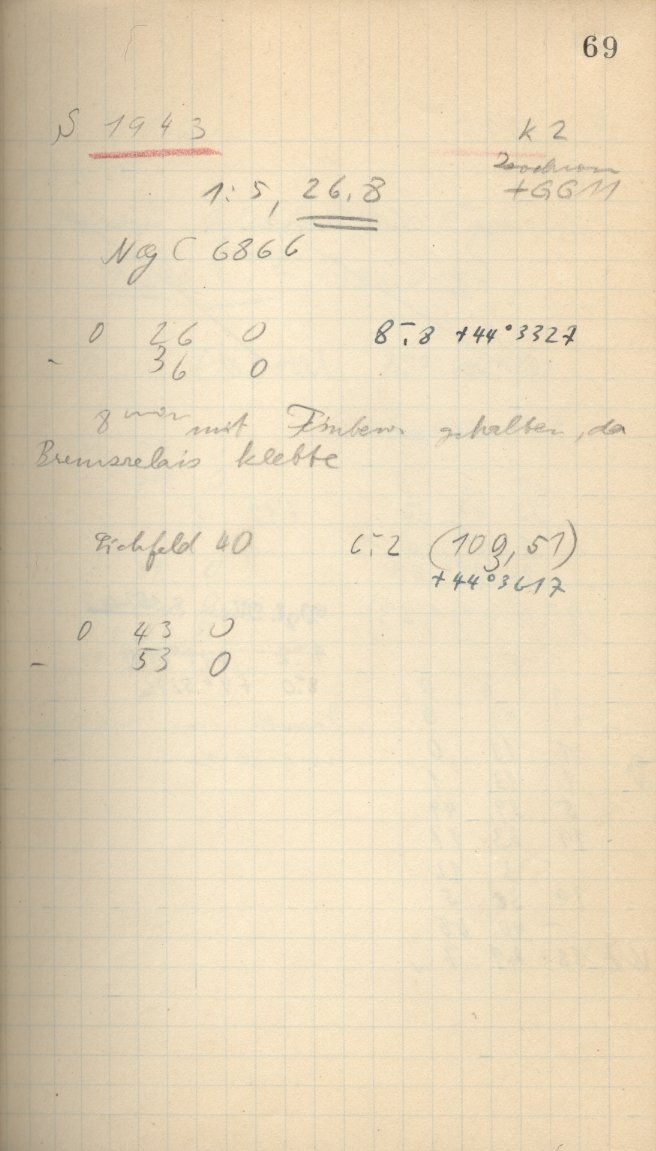 69
S 1943
K 2
Isochrom
+GG11
1:5, 26.8
NGC 6866
0 26 0 8.8 +44°3327
- 36 0
8 mit gehalten, da
Bremsrelais klebte
Eichfeld 40 6.2 (109,51)
+44°3617
0 43 0
- 53 0